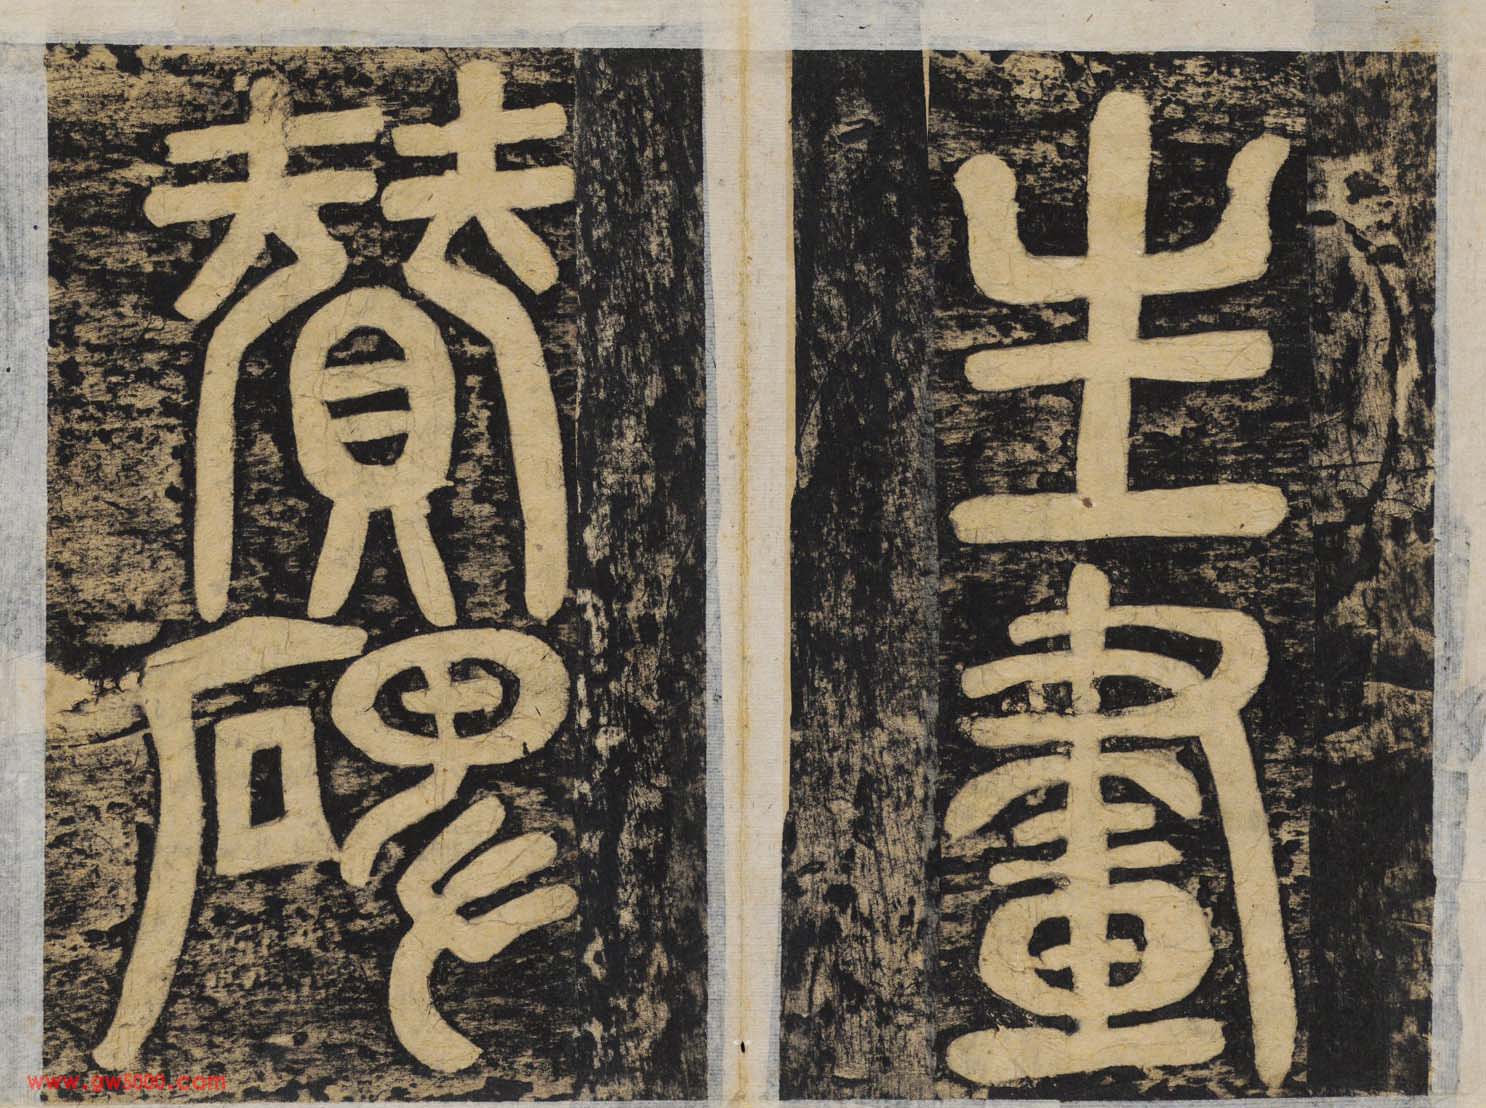 生畫
贊碑
www.gw5000.com